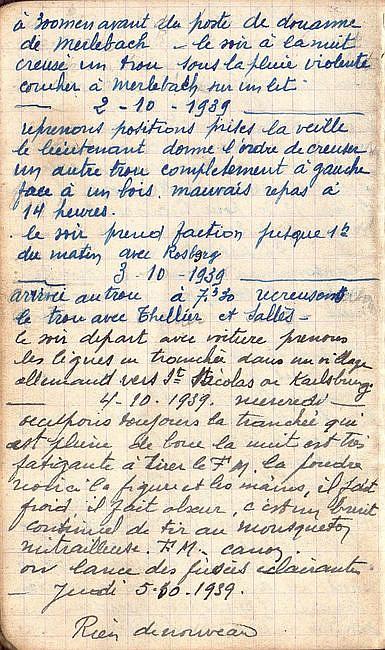 à 300m en avant du poste de douanne
de Merlebach - le soir à la nuit
creuse un trou sous la pluie violente
coucher à Merlebach sur un lit
— 2 - 10 - 1939 —
reprenons positions prises la veille
le lieutenant donne l'ordre de creuser
un autre trou complètement à gauche
face à un bois. mauvais repas à
14 heures.
. le soir prend faction jusque 1h
du matin avec Rosberg
3 - 10 - 1939 —
arrivée au trou à 7h30 recreusons
le trou avec Thellier et Salles -
le soir départ avec voiture prenons
les lignes en tranchée dans un village
allemand vers St Nicolas ou Karlsburg.
— 4 - 10 - 1939. mercredi —
occupons toujours la tranchée qui
est pleine de boue la nuit est très
fatigante à tirer le F.M. la poudre
noirci la figure et les mains, il fait
froid, il fait obscur, c'est un bruit
continuel de tir au mousqueton
mitrailleuse. F.M. - canon.
on lance des fusées éclairantes
— Jeudi 5-10-1939.
Rien de nouveau